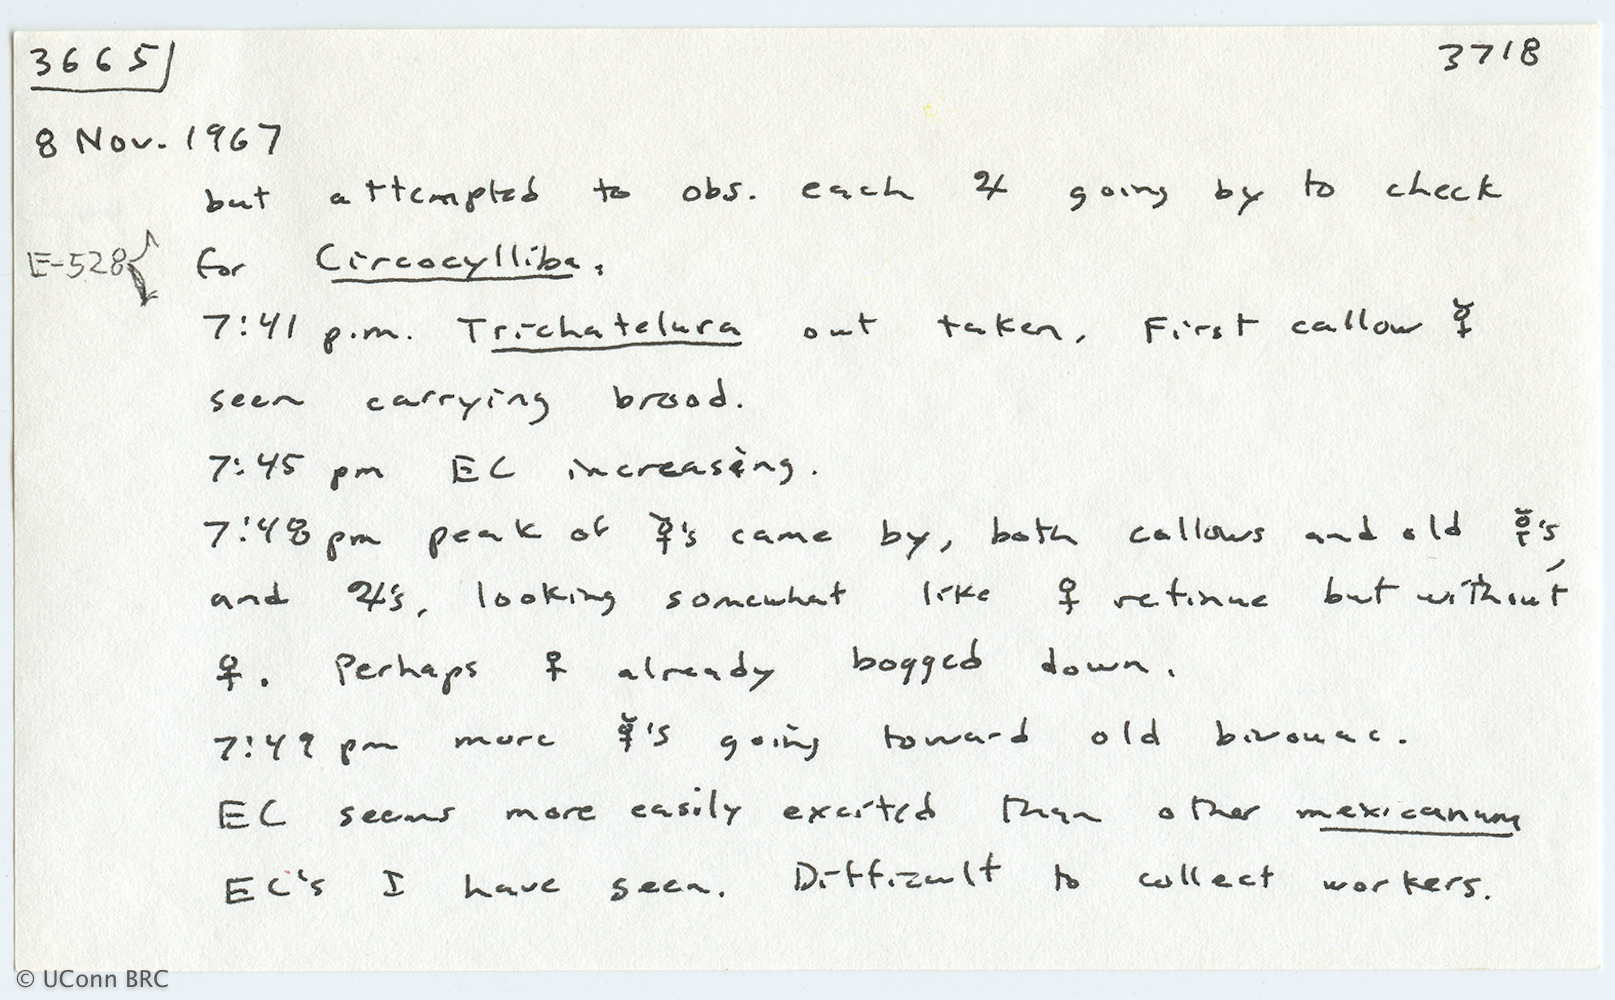 3665 3718
8 Nov. 1967
but attempted to obs. each ♃ going by to check
E-528 { for Circocylliba.
7:41 p.m. Trichatelura out taken. First callow ☿
seen carrying brood.
7:45 pm EC increasing.
7:48 pm peak of ☿'s came by, both callows and old ☿'s,
and ♃'s, looking somewhat like ♀ retinue but without
♀. Perhaps ♀ already bogged down.
7:49 pm more ☿'s going toward old bivouac.
EC seems more easily excited than other mexicanum
EC's I have seen. Difficult to collect workers.
© UConn BRC